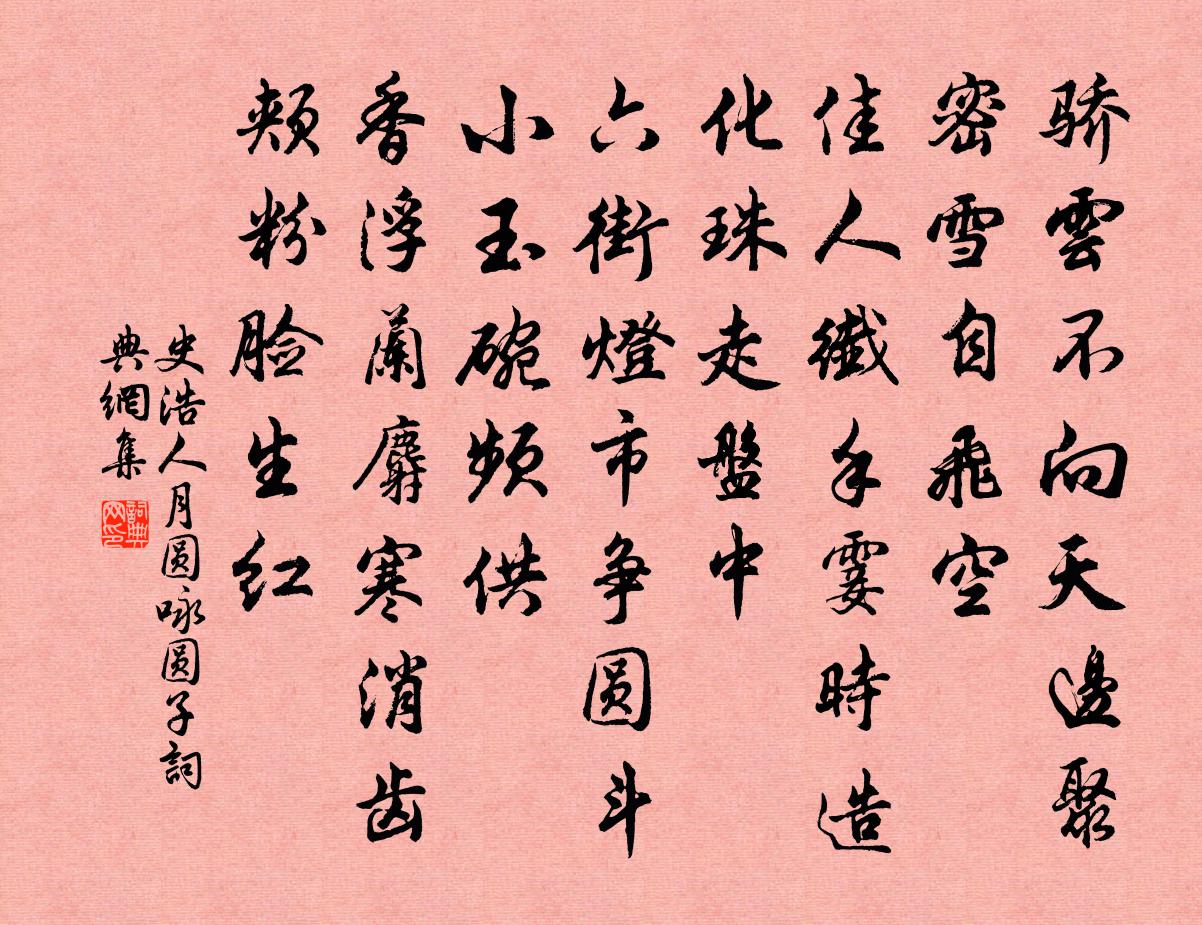 骄雲不向天邊聚
密雪自飛空
佳人纖手霎時造
化珠走盤中
六街燈市争圆斗
小玉碗频供
香浮蘭麝寒消齿
颊粉脸生红
史浩人月圓咏圓子詞
典網集
詞典网印